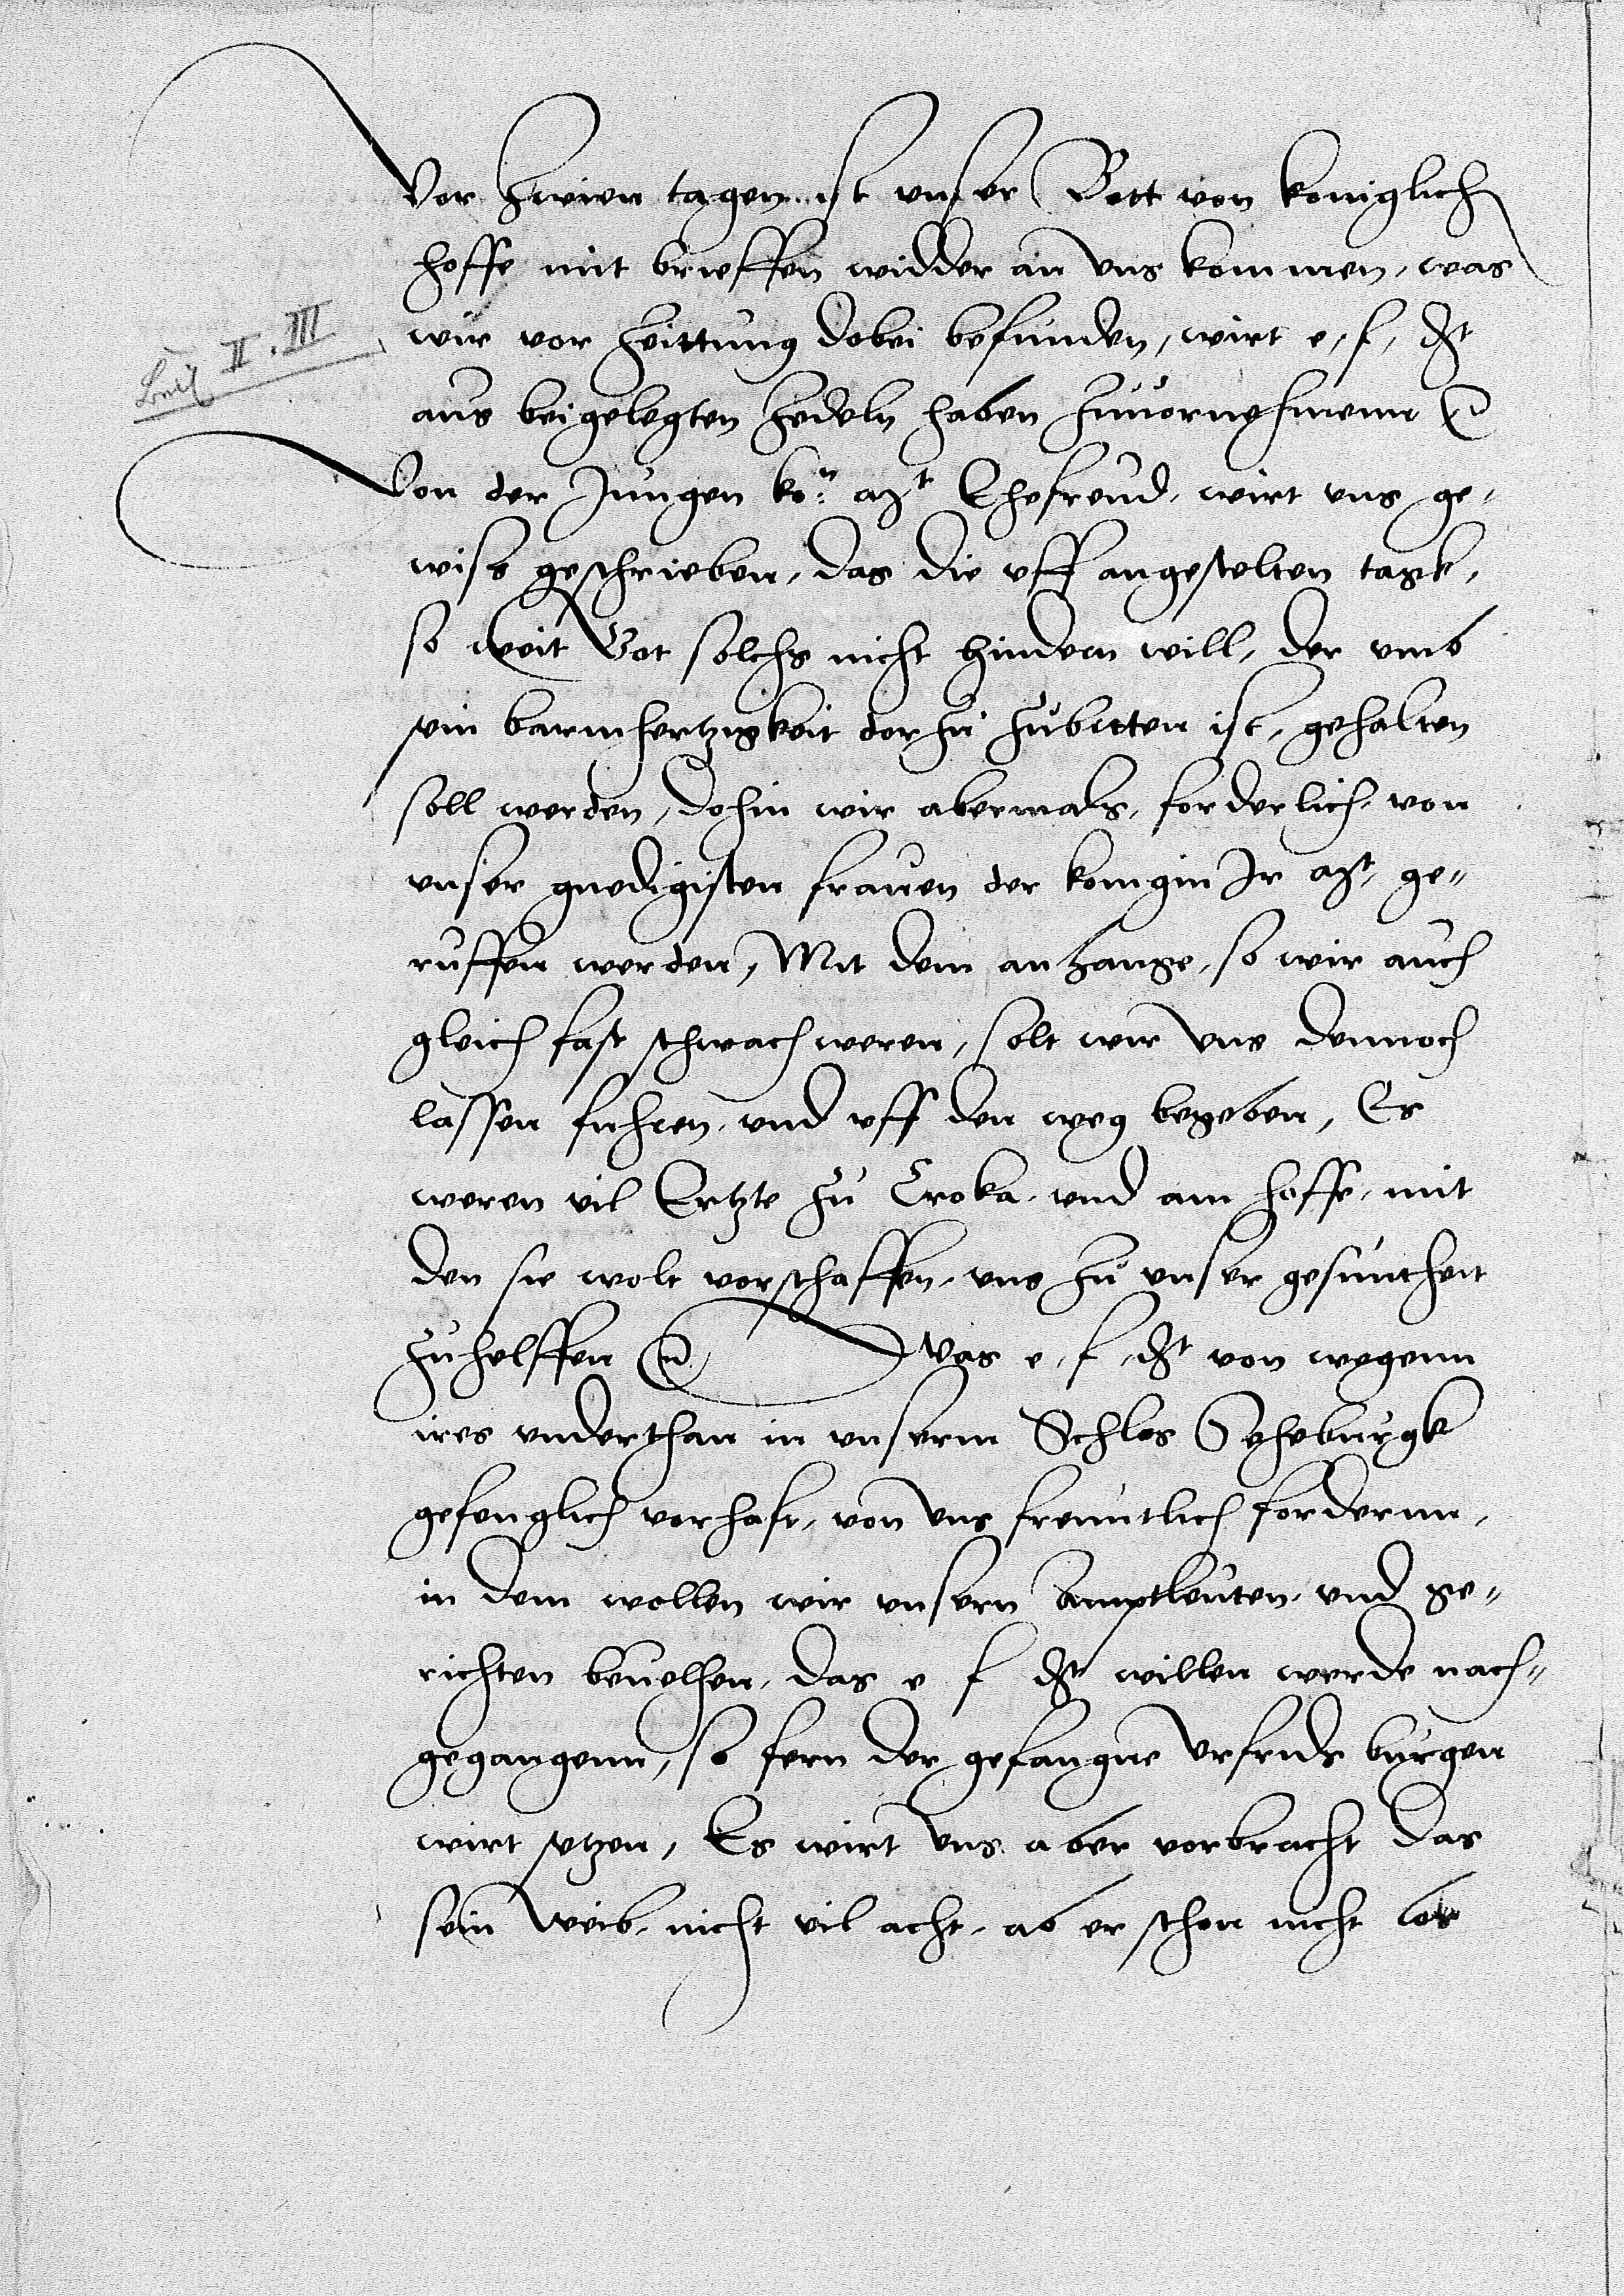 Vor zweien tagen ist unser Bott von koniglich
hoffe mit brieffen widder an vns kommen, was
wir vor zeittung dobei befunden, wirt e, f, dt
Beil II. III
aus beigelegten zedeln haben zuuornehmenn
Von der Jungen ko:n mt Ehefreud, wirt vns ge,
wiss geschrieben, das die vff angestelten tagk,
so weit Got solchs nicht hindern will, der vmb
sein barmhertzigkeit dorzu zubitten ist, gehalten
soll werden, dohin wir abermals, forderlich, von
vnser gnedigisten frauen der konigin Ir mt, ge-
ruffen werden, Mit dem anhange, so wir auch
gleich fast schwach weren, solt wir vns dennoch
lassen fuhren, vnd vff den weg begeben, Es
weren vil Ertzte zu Croka, vnd am hoffe, mit
den sie wolt vorschaffen, vns zu vnser gesuntheit
zuhelffen Was e, f, dt von wegenn
ires vnderthan in vnserm Schlos Seheburgk
gefenglich vorhaft, von vns freuntlich fordernn,
in dem wollen wir vnsern Amptleuten, vnd ge-
richten beuelhen, das e f dt willen werde nach-
gegangenn, so fern der gefangne Vrfride burgen
wirt setzen, Es wirt vns aber vorbracht das
sein weib, nicht vil acht, ab er schon nicht los